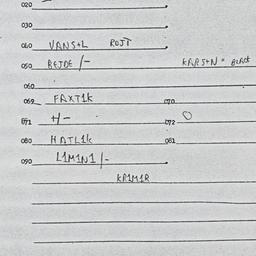 020
030
040 VANS+L ROJT
050 REJDE /-
KARS+N = BLACK
060
069 FAXT1K 070
071 +/- 072 O
080 HATL1K 081
090 L1M1N1 /-
KR1M1R